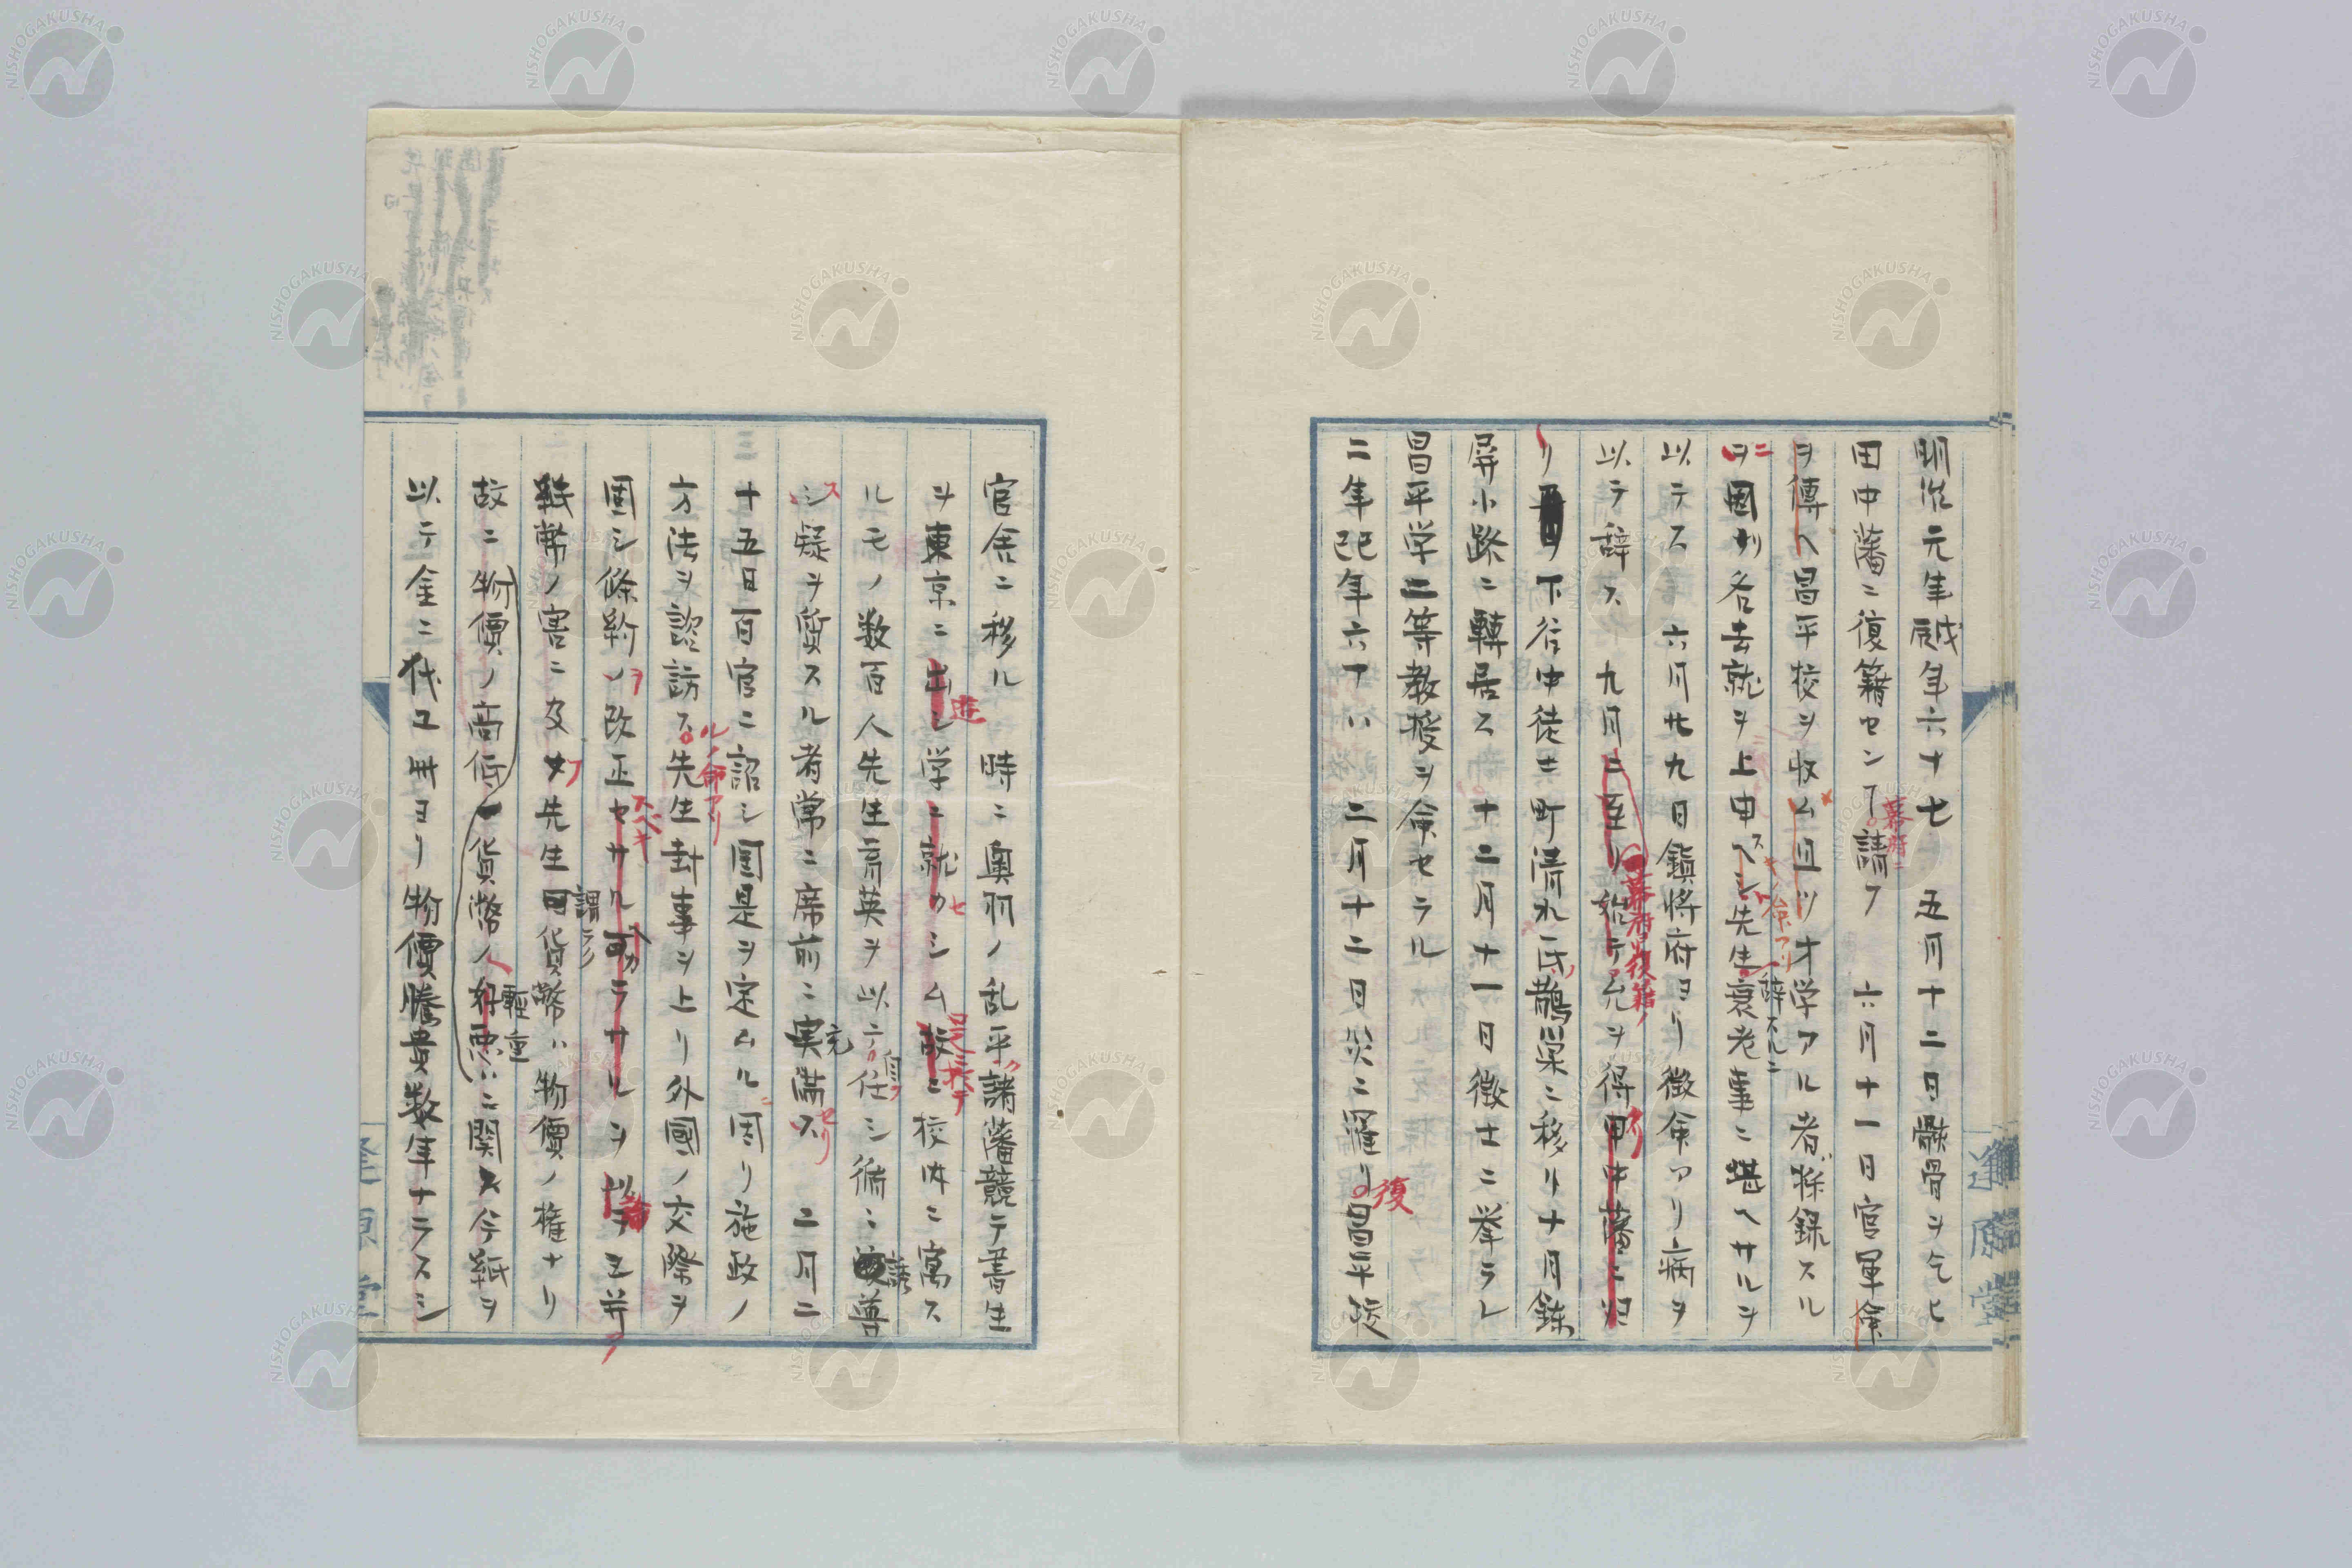 明治元年戊辰年六十七　五月十二日骸骨ヲ乞ヒ
田中藩ニ復籍セン丁。幕府ニ請フ　六月十一日官軍命
ヲ傳ヘ昌平校ヲ收ム且ツ才学アル者ハ採録スル
ヲニ因リ各去就ヲ上申スヘシ先生衰老事ニ堪ヘサルヲ
以テス　六月廿九日鎮将府ヨリ徴命アリ病ヲ
以テ辞ス　九月ニ至リ始テ允ヲ得田中藩ニ
幕府復籍ノ
リ下谷中徒士町清水氏鵲巣ニ移リ十月錬
屏小路ニ轉居ス　十二月十一日徴士ニ挙ラレ
昌平学二等教授ヲ命セラル
二年己巳年六十八　二月十二日災ニ罹リ。復昌平校
官舎ニ移ル　時ニ奥羽ノ乱平諸藩競テ書生
ヲ東京ニ出シ遊学ニ就カセシム故ニ校内ニ寓ス
ルモノ数百人先生育英ヲ以テ。自ラ任シ循々誘導
シス疑ヲ質スル者常ニ席前ニ実充満スセリ　二月二
三十五日百官ニ詔シ国是ヲ定ムル因リ施政ノ
方法ヲ諮訪ス。ルノ命アリ先生封事ヲ上リ外國ノ交際ヲ
固シ條約ノヲ改正セスベキサル可カラサルヲ以テ論並
紙幣ノ害ニ及ヘリ先生謂ラク貨幣ハ物價ノ権ナリ
故ニ物價ノ高低ハ貨幣ノ好悪軽重ニ関ス今紙ヲ
以テ金ニ代ユ卌ヨリ物價騰貴数年ナラスシ
逢原堂
NISHOGAKUSHA